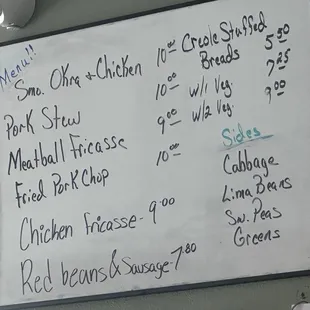 Menu!!
Smo. Okra + Chicken 10.00
Pork Stew 10.00
Meatball Fricasse 9.00
Fried Pork Chop 10.00
Chicken Fricasse - 9.00
Red beans & Sausage - 7.80
Creole Stuffed
Breads 5.50
w/1 Veg. 7.25
w/2 Veg. 9.00
Sides
Cabbage
Lima Beans
Sw. Peas
Greens